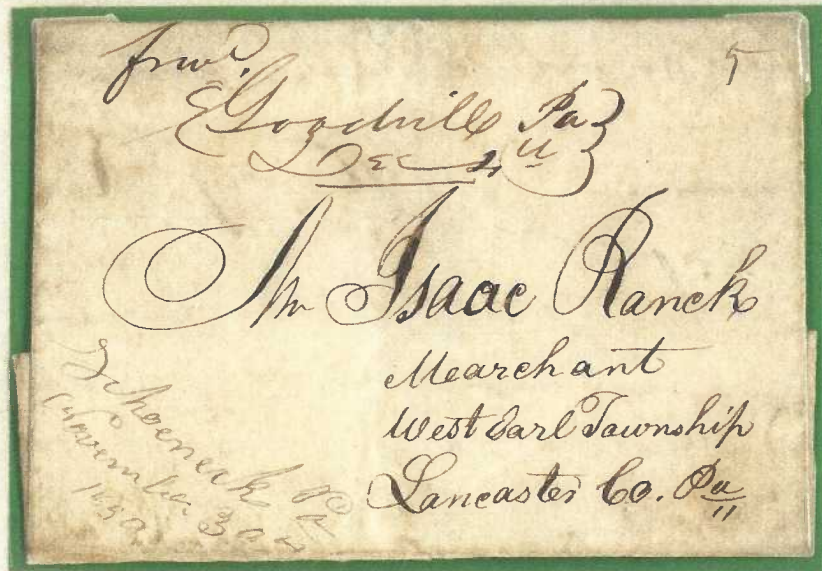 5
Goodville Pa
Dec
Mr Isaac Ranck
Mearchant
West Earl Township
Lancaster Co. Pa
Schoeneck Pa
November 30